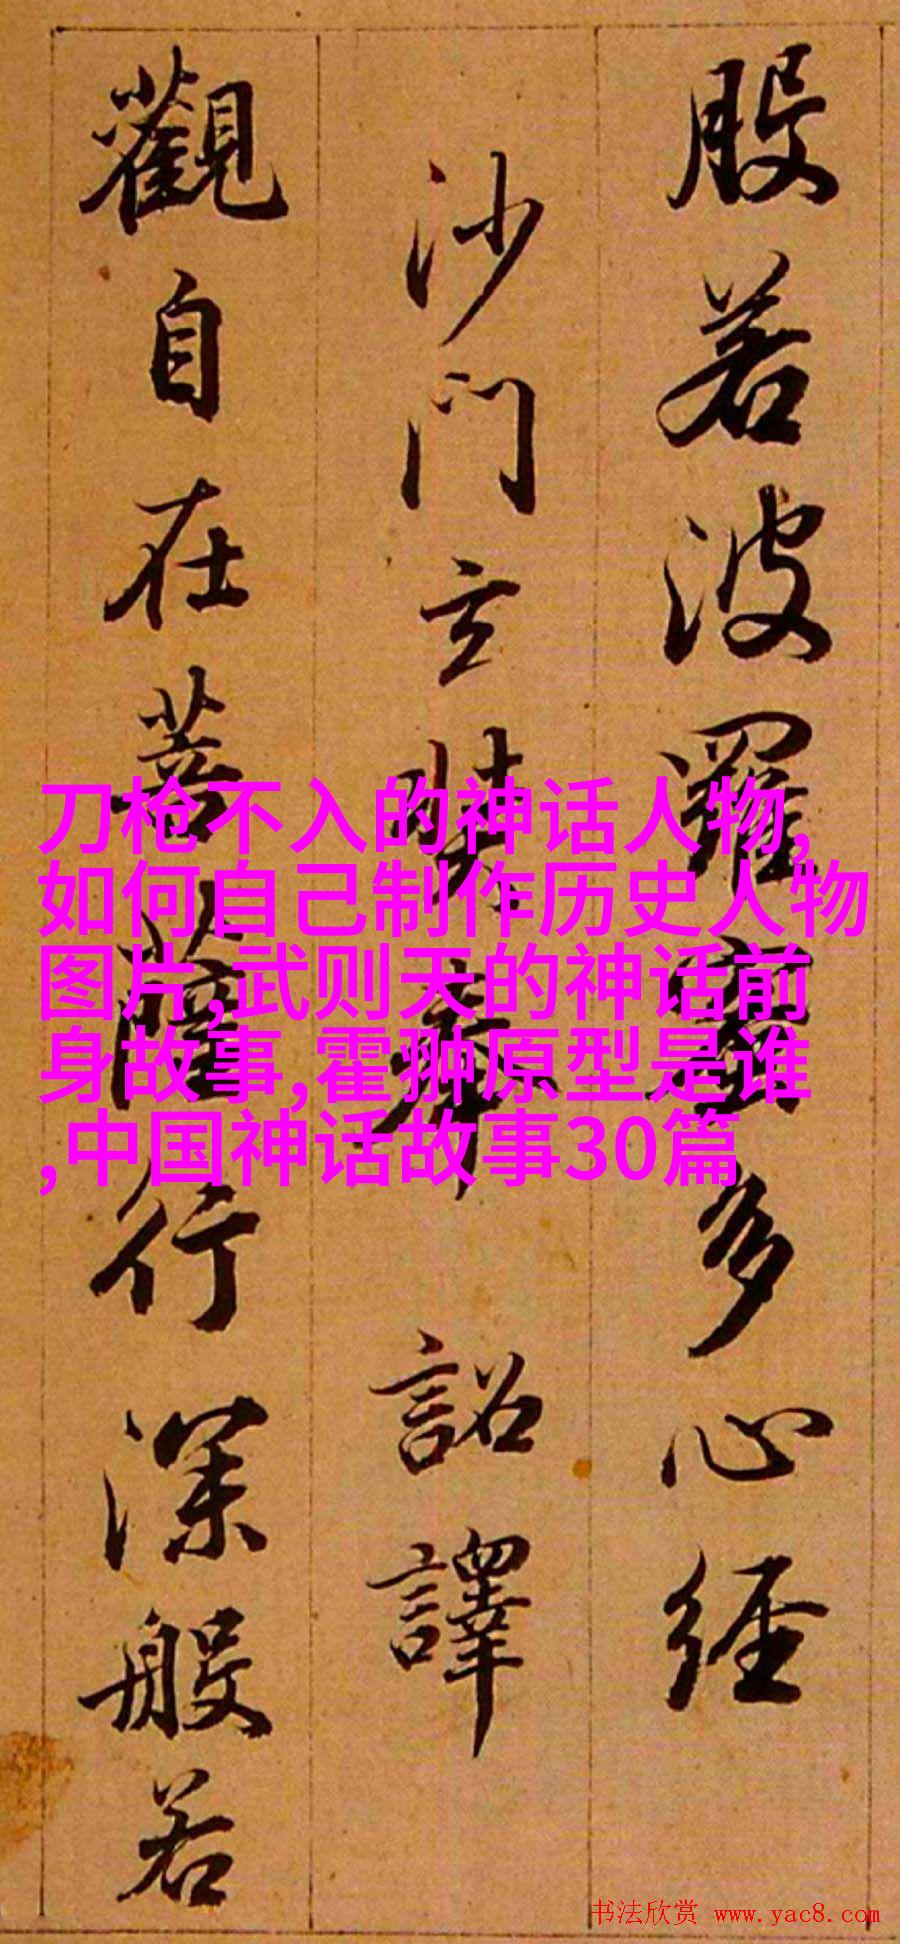 般若波羅蜜多心経
沙門玄奘奉 詔譯
觀自在菩薩行深般若
刀枪不入的神话人物,
如何自己制作历史人物
图片,武则天的神话前
身故事,霍翀原型是谁
,中国神话故事30篇
书法欣赏 www.yac8.com